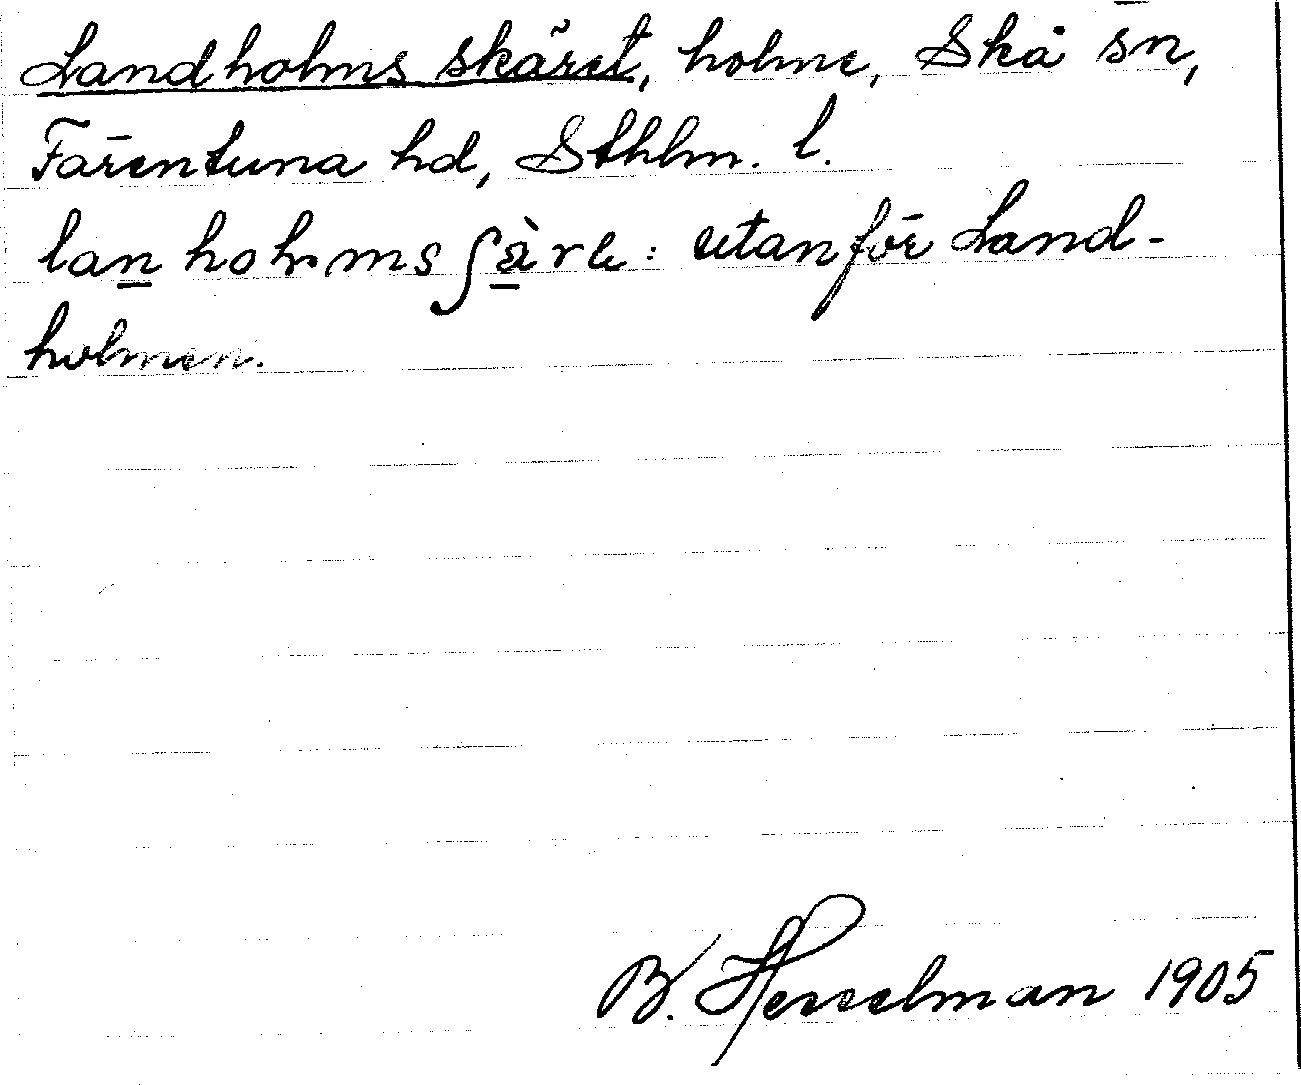 Landholms skäret, holme, Skå sn,
Färentuna hd, Sthlm. l.
utanför Land-
holmen.
B. Hesselman 1905